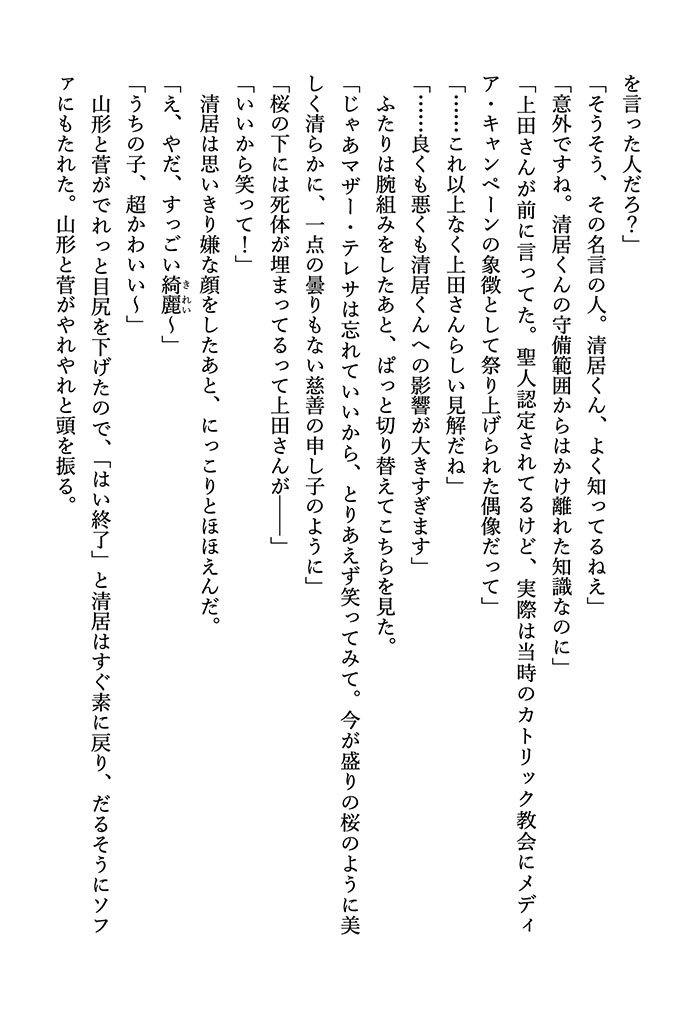 を言った人だろ？」
「そうそう、その名言の人。清居くん、よく知ってるねえ」
「意外ですね。清居くんの守備範囲からはかけ離れた知識なのに」
「上田さんが前に言ってた。聖人認定されてるけど、実際は当時のカトリック教会にメディ
ア・キャンペーンの象徴として祭り上げられた偶像だって」
「……これ以上なく上田さんらしい見解だね」
「……良くも悪くも清居くんへの影響が大きすぎます」
　ふたりは腕組みをしたあと、ぱっと切り替えてこちらを見た。
「じゃあマザー・テレサは忘れていいから、とりあえず笑ってみて。今が盛りの桜のように美
しく清らかに、一点の曇りもない慈善の申し子のように」
「桜の下には死体が埋まってるって上田さんが――」
「いいから笑って！」
　清居は思いきり嫌な顔をしたあと、にっこりとほほえんだ。
「え、やだ、すっごい綺麗きれい～」
「うちの子、超かわいい～」
　山形と菅がでれっと目尻を下げたので、「はい終了」と清居はすぐ素に戻り、だるそうにソフ
ァにもたれた。山形と菅がやれやれと頭を振る。